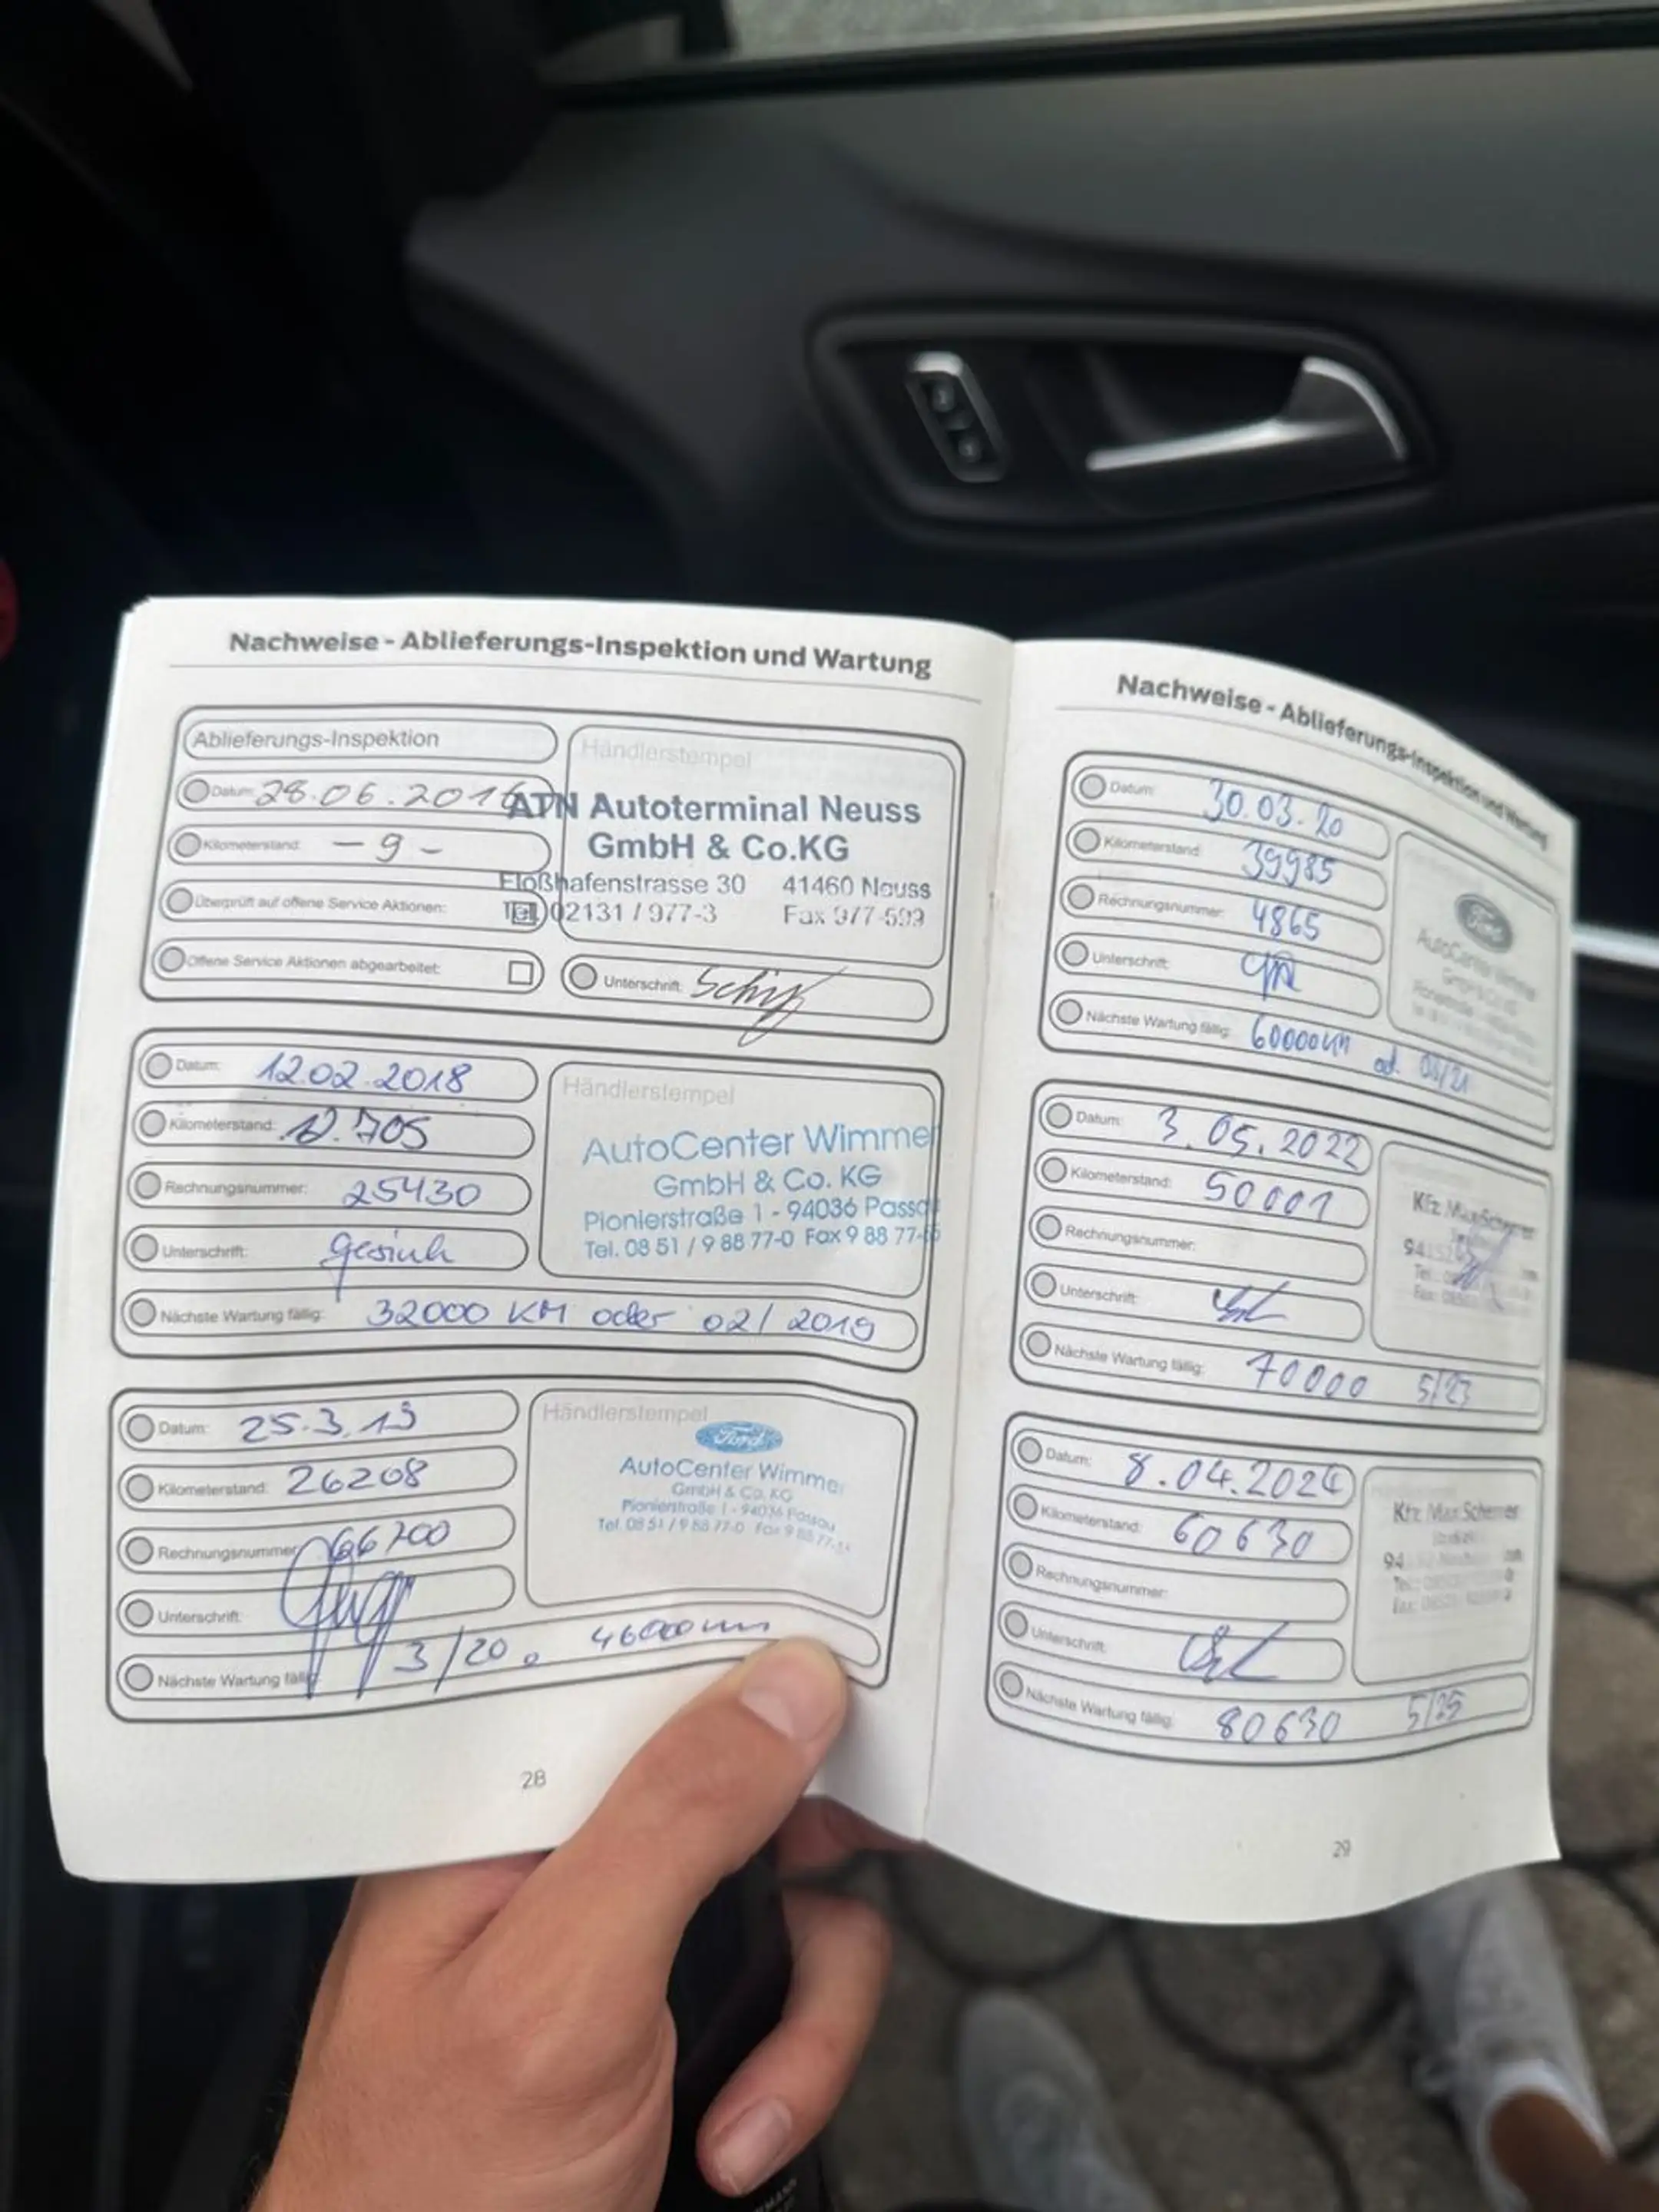 Nachweise - Ablieferungs-Inspektion und Wartung
Ablieferungs-Inspektion
Händlerstempel
Datum: 28.06.2016
ATN Autoterminal Neuss
GmbH & Co.KG
Kilometerstand: - 9 -
Floßhafenstrasse 30 41460 Neuss
Überprüft auf offene Service Aktionen:
Tel. 02131 / 977-3 Fax 977-599
Offene Service Aktionen abgearbeitet:
Unterschrift:
Datum: 12.02.2018
Händlerstempel
Kilometerstand: 12.705
AutoCenter Wimme
GmbH & Co. KG
Rechnungsnummer: 25430
Pionierstraße 1 - 94036 Passa
Unterschrift:
Tel. 08 51 / 9 88 77-0 Fax 9 88 77-
Nächste Wartung fällig: 32000 KM oder 02/2019
Datum: 25.3.19
Händlerstempel
Ford
Kilometerstand: 26208
AutoCenter Wimmer
GmbH & Co. KG
Pionierstraße 1 - 94036 Passau
Rechnungsnummer: 66700
Tel. 08 51 / 9 88 77-0 Fax 9 88 77-
Unterschrift:
Nächste Wartung fällig: 3/20 o 46000 km
28
Nachweise - Ablieferungs-Inspektion und Wartung
Datum: 30.03.20
Kilometerstand: 39985
Ford
Rechnungsnummer: 4865
AutoCenter Wimmer
Unterschrift:
Nächste Wartung fällig: 60000 km od.
Datum: 3.05.2022
Kilometerstand: 50001
Kfz Max
Rechnungsnummer:
Unterschrift:
Nächste Wartung fällig: 70000 5/23
Datum: 8.04.2024
Kilometerstand: 60630
Kfz Max
Rechnungsnummer:
Unterschrift:
Nächste Wartung fällig: 80630 5/25
29